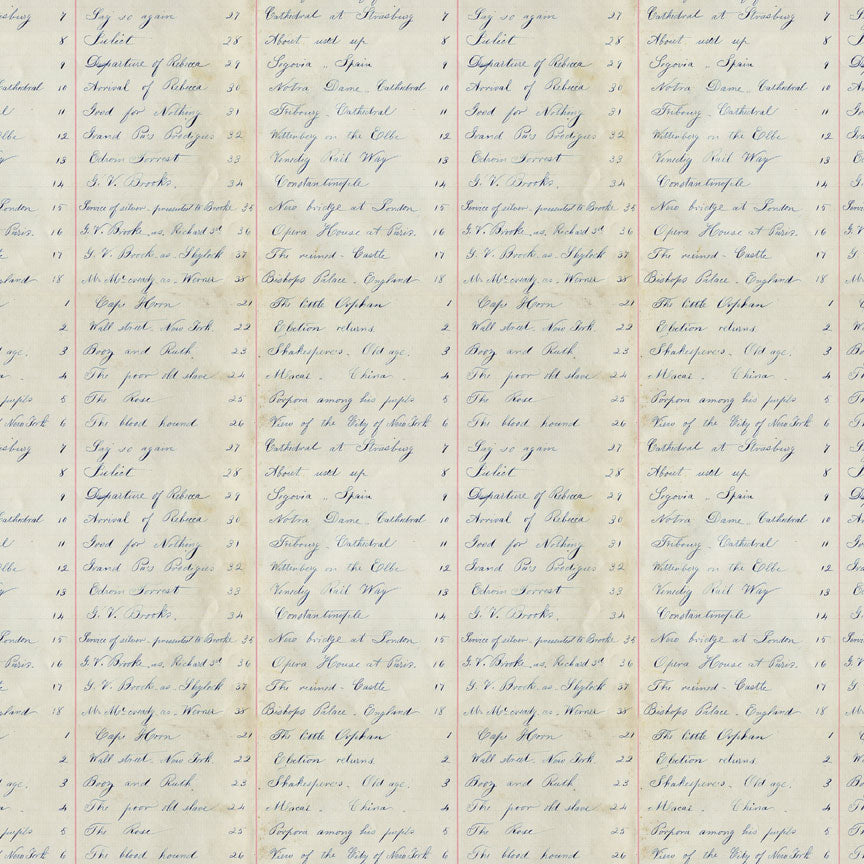 7 Say so again 27 Cathedral at Strasburg 7 Say so again 27 Cathedral at Strasburg 7
8 Juliet 28 About used up 8 Juliet 28 About used up 8
9 Departure of Rebecca 29 Segovia „ Spain 9 Departure of Rebecca 29 Segovia „ Spain 9
Cathedral 10 Arrival of Rebecca 30 Notra Dame „ Cathedral 10 Arrival of Rebecca 30 Notra Dame „ Cathedral 10
11 Good for Nothing 31 Fribourg . Cathedral 11 Good for Nothing 31 Fribourg . Cathedral 11
12 Grand Pa's Prodigies 32 Wittenberg on the Elbe 12 Grand Pa's Prodigies 32 Wittenberg on the Elbe 12
13 Edwin Forrest 33 Venedig Rail Way 13 Edwin Forrest 33 Venedig Rail Way 13
14 G. V. Brooke. 34 Constantinople 14 G. V. Brooke. 34 Constantinople 14
London 15 Service of silver. presented to Brooke 35 New bridge at London 15 Service of silver. presented to Brooke 35 New bridge at London 15
Paris. 16 G. V. Brooke. as. Richard 3d 36 Opera House at Paris. 16 G. V. Brooke. as. Richard 3d 36 Opera House at Paris. 16
17 G. V. Brooke. as. Shylock 37 The ruined - Castle 17 G. V. Brooke. as. Shylock 37 The ruined - Castle 17
18 Mr Mccready. as. Werner 38 Bishops Palace . England 18 Mr Mccready. as. Werner 38 Bishops Palace . England 18
1 Cape Horn 21 The little Orphan 1 Cape Horn 21 The little Orphan 1
2 Wall street. New York. 22 Election returns 2 Wall street. New York. 22 Election returns 2
age. 3 Booz and Ruth. 23 Shakespere's. Old age. 3 Booz and Ruth. 23 Shakespere's. Old age. 3
4 The poor old slave 24 Macao . China . 4 The poor old slave 24 Macao . China . 4
pupils 5 The Rose 25 Porpora among his pupils 5 The Rose 25 Porpora among his pupils 5
New York 6 The blood hound 26 View of the City of New York 6 The blood hound 26 View of the City of New York 6
7 Say so again 27 Cathedral at Strasburg 7 Say so again 27 Cathedral at Strasburg 7
8 Juliet 28 About used up 8 Juliet 28 About used up 8
9 Departure of Rebecca 29 Segovia „ Spain 9 Departure of Rebecca 29 Segovia „ Spain 9
Cathedral 10 Arrival of Rebecca 30 Notra Dame „ Cathedral 10 Arrival of Rebecca 30 Notra Dame „ Cathedral 10
11 Good for Nothing 31 Fribourg . Cathedral 11 Good for Nothing 31 Fribourg . Cathedral 11
12 Grand Pa's Prodigies 32 Wittenberg on the Elbe 12 Grand Pa's Prodigies 32 Wittenberg on the Elbe 12
13 Edwin Forrest 33 Venedig Rail Way 13 Edwin Forrest 33 Venedig Rail Way 13
14 G. V. Brooke. 34 Constantinople 14 G. V. Brooke. 34 Constantinople 14
London 15 Service of silver. presented to Brooke 35 New bridge at London 15 Service of silver. presented to Brooke 35 New bridge at London 15
Paris. 16 G. V. Brooke. as. Richard 3d 36 Opera House at Paris. 16 G. V. Brooke. as. Richard 3d 36 Opera House at Paris. 16
17 G. V. Brooke. as. Shylock 37 The ruined - Castle 17 G. V. Brooke. as. Shylock 37 The ruined - Castle 17
18 Mr Mccready. as. Werner 38 Bishops Palace . England 18 Mr Mccready. as. Werner 38 Bishops Palace . England 18
1 Cape Horn 21 The little Orphan 1 Cape Horn 21 The little Orphan 1
2 Wall street. New York. 22 Election returns 2 Wall street. New York. 22 Election returns 2
age. 3 Booz and Ruth. 23 Shakespere's. Old age. 3 Booz and Ruth. 23 Shakespere's. Old age. 3
4 The poor old slave 24 Macao . China . 4 The poor old slave 24 Macao . China . 4
pupils 5 The Rose 25 Porpora among his pupils 5 The Rose 25 Porpora among his pupils 5
New York 6 The blood hound 26 View of the City of New York 6 The blood hound 26 View of the City of New York 6